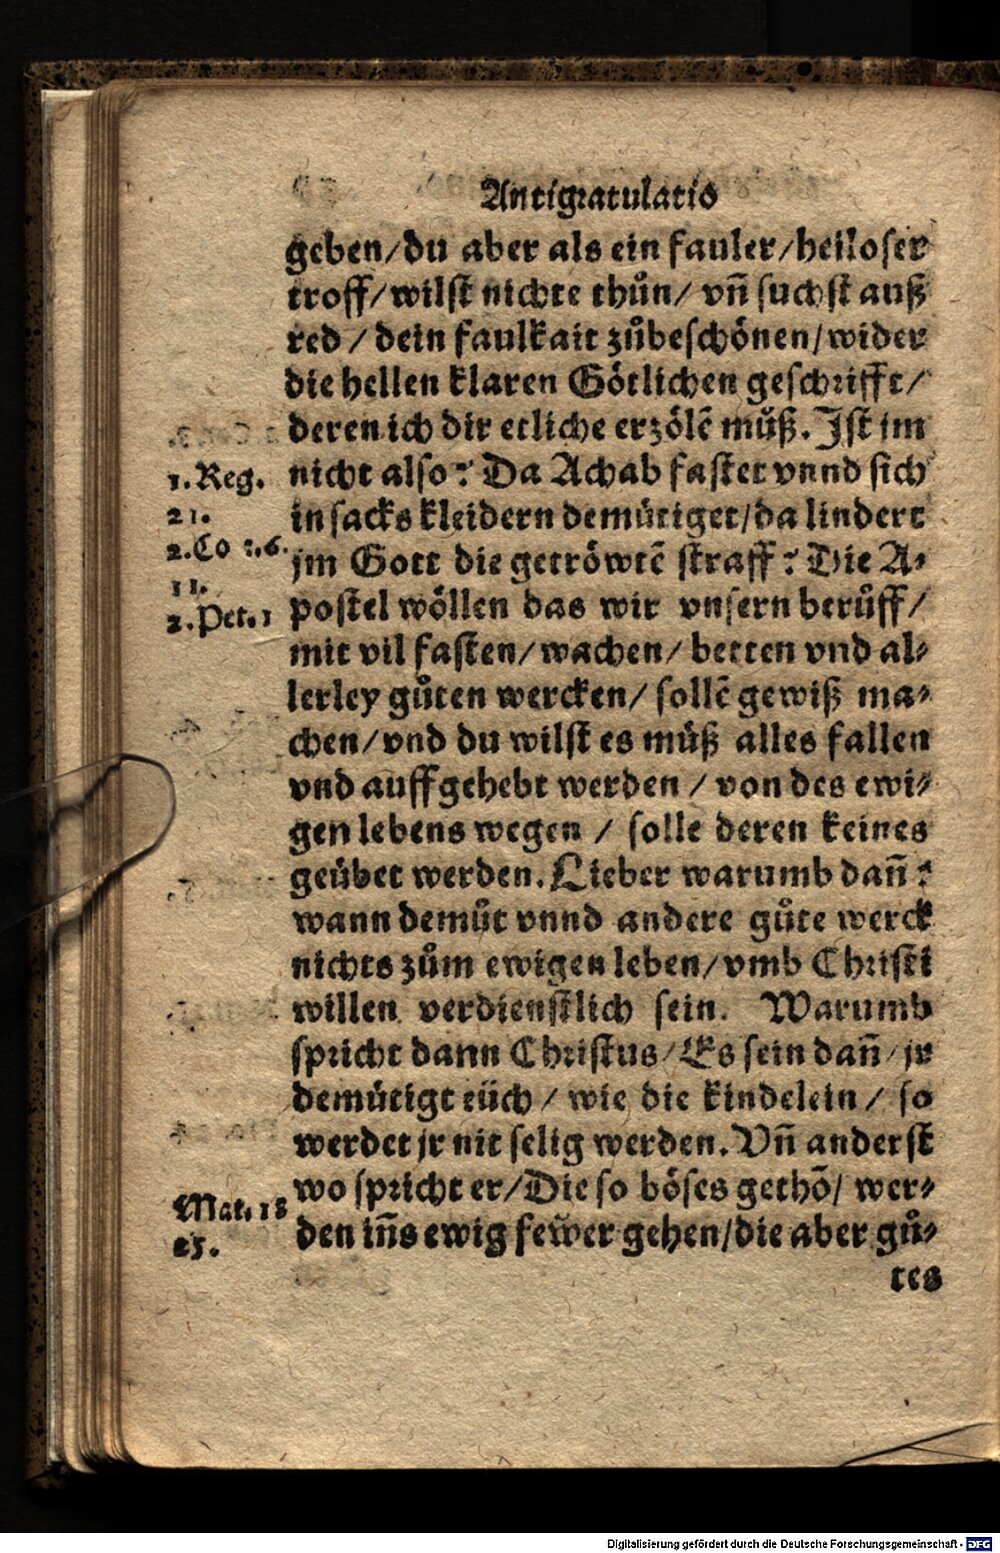 Antigratulatio
geben/du aber als ein fauler/heiloser
troff/wilst nichte thůn/ vñ suchst auß
red / dein faulkait zůbeschönen/wider
die hellen klaren Götlichen geschrifft/
deren ich dir etliche erzölē můß. Ist jm
nicht also? Da Achab fastet vnnd sich
in sacks kleidern demütiget/da lindert
jm Gott die getröwtē straff? Die A-
postel wöllen das wir vnsern berůff/
mit vil fasten/wachen/ betten vnd al-
lerley gůten wercken/ sollē gewiß ma-
chen/vnd du wilst es můß alles fallen
vnd auffgehebt werden / von des ewi-
gen lebens wegen / solle deren keines
geübet werden. Lieber warumb dañ?
wann demůt vnnd andere gůte werck
nichts zům ewigen leben/vmb Christi
willen verdienstlich sein. Warumb
spricht dann Christus/Es sein dañ/jr
demütigt eüch / wie die kindelein / so
werdet jr nit selig werden. Vñ anderst
wo spricht er/Die so böses gethō/ wer-
den iñs ewig fewer gehen/die aber gů-
tes
1. Reg.
21.
2. Co r. 6.
11.
2. Pet. 1
Mat. 18
25.
Digitalisierung gefördert durch die Deutsche Forschungsgemeinschaft - DFG